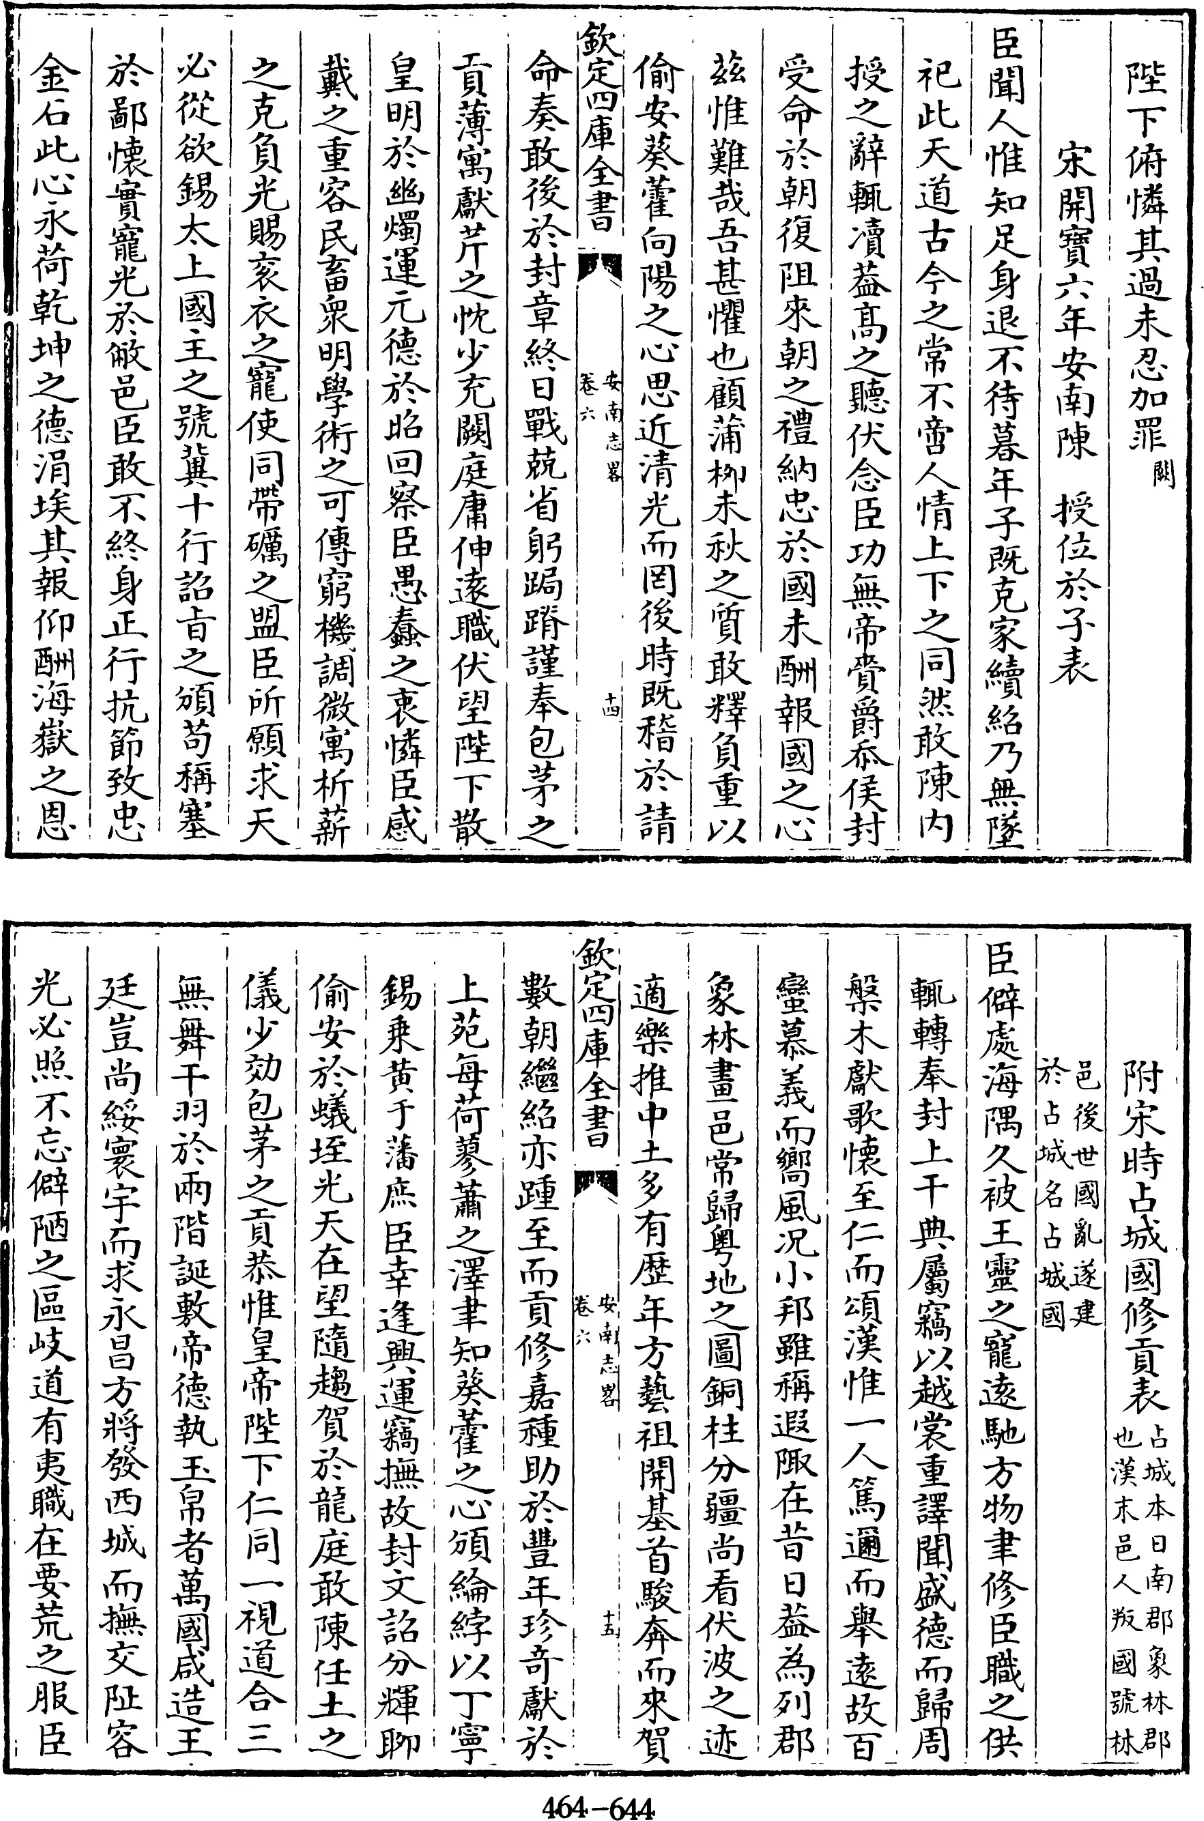 陛下俯憐其過未忍加罪闕
宋開寶六年安南陳　授位於子表
臣聞人惟知足身退不待暮年子既克家續紹乃無墜
祀此天道古今之常不啻人情上下之同然敢陳内
授之辭輒瀆葢髙之聽伏念臣功無帝賚爵忝侯封
受命於朝復阻來朝之禮納忠於國未酬報國之心
兹惟難哉吾甚懼也顧蒲柳未秋之質敢釋負重以
偷安葵藿向陽之心思近清光而罔後時既稽於請
欽定四庫全書
安南志畧
卷六
十四
命奏敢後於封章終日戰兢省躬跼蹐謹奉包茅之
貢薄寓獻芹之忱少充闕庭庸伸逺職伏望陛下散
皇明於幽燭運元德於昭回察臣愚蠢之衷憐臣感
戴之重容民畜衆明學術之可傳窮機調微寓析薪
之克負光賜衮衣之寵使同帶礪之盟臣所願求天
必從欲錫太上國主之號冀十行詔㫖之頒苟稱塞
於鄙懷實寵光於敝邑臣敢不終身正行抗節致忠
金石此心永荷乾坤之德涓埃其報仰酬海嶽之恩
附宋時占城國修貢表占城本日南郡象林郡
也漢末邑人叛國號林
邑後世國亂遂建
於占城名占城國
臣僻處海隅久被王靈之寵逺馳方物聿修臣職之供
輒轉奉封上干典屬竊以越裳重譯聞盛德而歸周
槃木獻歌懷至仁而頌漢惟一人篤邇而舉逺故百
蠻慕義而嚮風况小邦雖稱遐陬在昔日葢為列郡
象林畫邑常歸粤地之圖銅柱分疆尚看伏波之迹
適樂推中土多有歴年方藝祖開基首駿奔而來賀
欽定四庫全書
安南志畧
卷六
十五
數朝繼紹亦踵至而貢修嘉種助於豐年珍奇獻於
上苑每荷蓼蕭之澤聿知葵藿之心頒綸綍以丁寧
錫乗黄于藩庶臣幸逢興運竊撫故封文詔分輝聊
偷安於蟻垤光天在望隨趨賀於龍庭敢陳任土之
儀少効包茅之貢恭惟皇帝陛下仁同一視道合三
無舞干羽於兩階誕敷帝德執玉帛者萬國咸造王
廷豈尚綏寰宇而求永昌方將發西城而撫交阯容
光必照不忘僻陋之區岐道有夷職在要荒之服臣
464-644